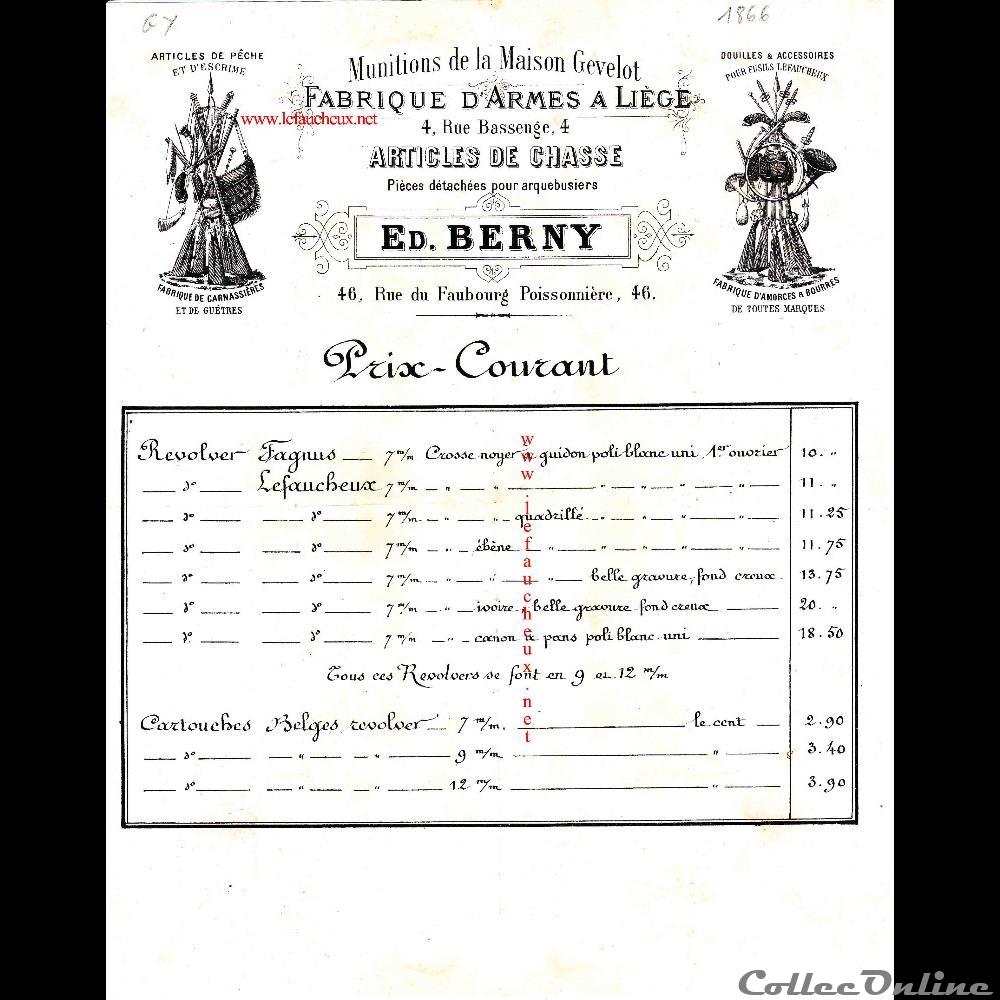 GY
1866
ARTICLES DE PÊCHE
ET D'ESCRIME
FABRIQUE DE CARNASSIÈRES
ET DE GUÊTRES
Munitions de la Maison Gevelot
FABRIQUE D'ARMES A LIÈGE
www.lefaucheux.net
4, Rue Bassenge, 4
ARTICLES DE CHASSE
Pièces détachées pour arquebusiers
ED. BERNY
46, Rue du Faubourg Poissonnière, 46.
DOUILLES & ACCESSOIRES
POUR FUSILS LEFAUCHEUX
FABRIQUE D'AMORCES & BOURRES
DE TOUTES MARQUES
Prix-Courant
Revolver Fagnus — 7 m/m Crosse noyer à guidon poli blanc uni, 1er ouvrier 10. "
— do — Lefaucheux 7 m/m — " — " — " — " — " — " 11. "
— do — — do — 7 m/m — " — " quadrillé — " — " — " — " 11.25
— do — — do — 7 m/m — " — ébène — " — " — " — " — " 11.75
— do — — do — 7 m/m — " — " — " — belle gravure, fond creux 13.75
— do — — do — 7 m/m — " — ivoire, belle gravure fond creux — 20. "
— do — — do — 7 m/m — " — canon à pans poli blanc uni — 18.50
Tous ces Revolvers se font en 9 et 12 m/m
Cartouches Belges revolver — 7 m/m. — le cent — 2.90
— do — — " — — " — 9 m/m — " — 3.40
— do — — " — — " — 12 m/m — " — 3.90
www.lefaucheux.net
CollecOnline